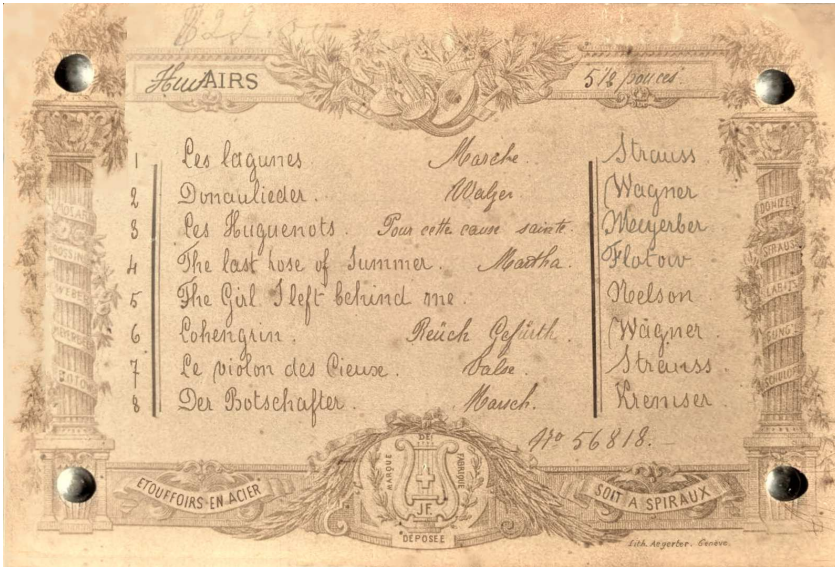 Huit AIRS 5 1/2 pouces.
1 Les lagunes Marche. Strauss.
2 Donaulieder. Walzer Wagner
3 Les Huguenots. Pour cette cause sainte. Meyerber
4 The last rose of Summer. Martha. Flotow
5 The Girl I left behind me. Nelson
6 Lohengrin. Wagner
7 Le violon des Cieux. Valse. Strauss
8 Der Botschafter. Marsch. Kremser
No 56818.
WEBER
DONIZE
STRAUSS
LABITS
ETOUFFOIRS EN ACIER
MARQUE DE FABRIQUE
J.F.
DÉPOSÉE
SOIT A SPIRAUX
Lith. Aegerter. Genève.